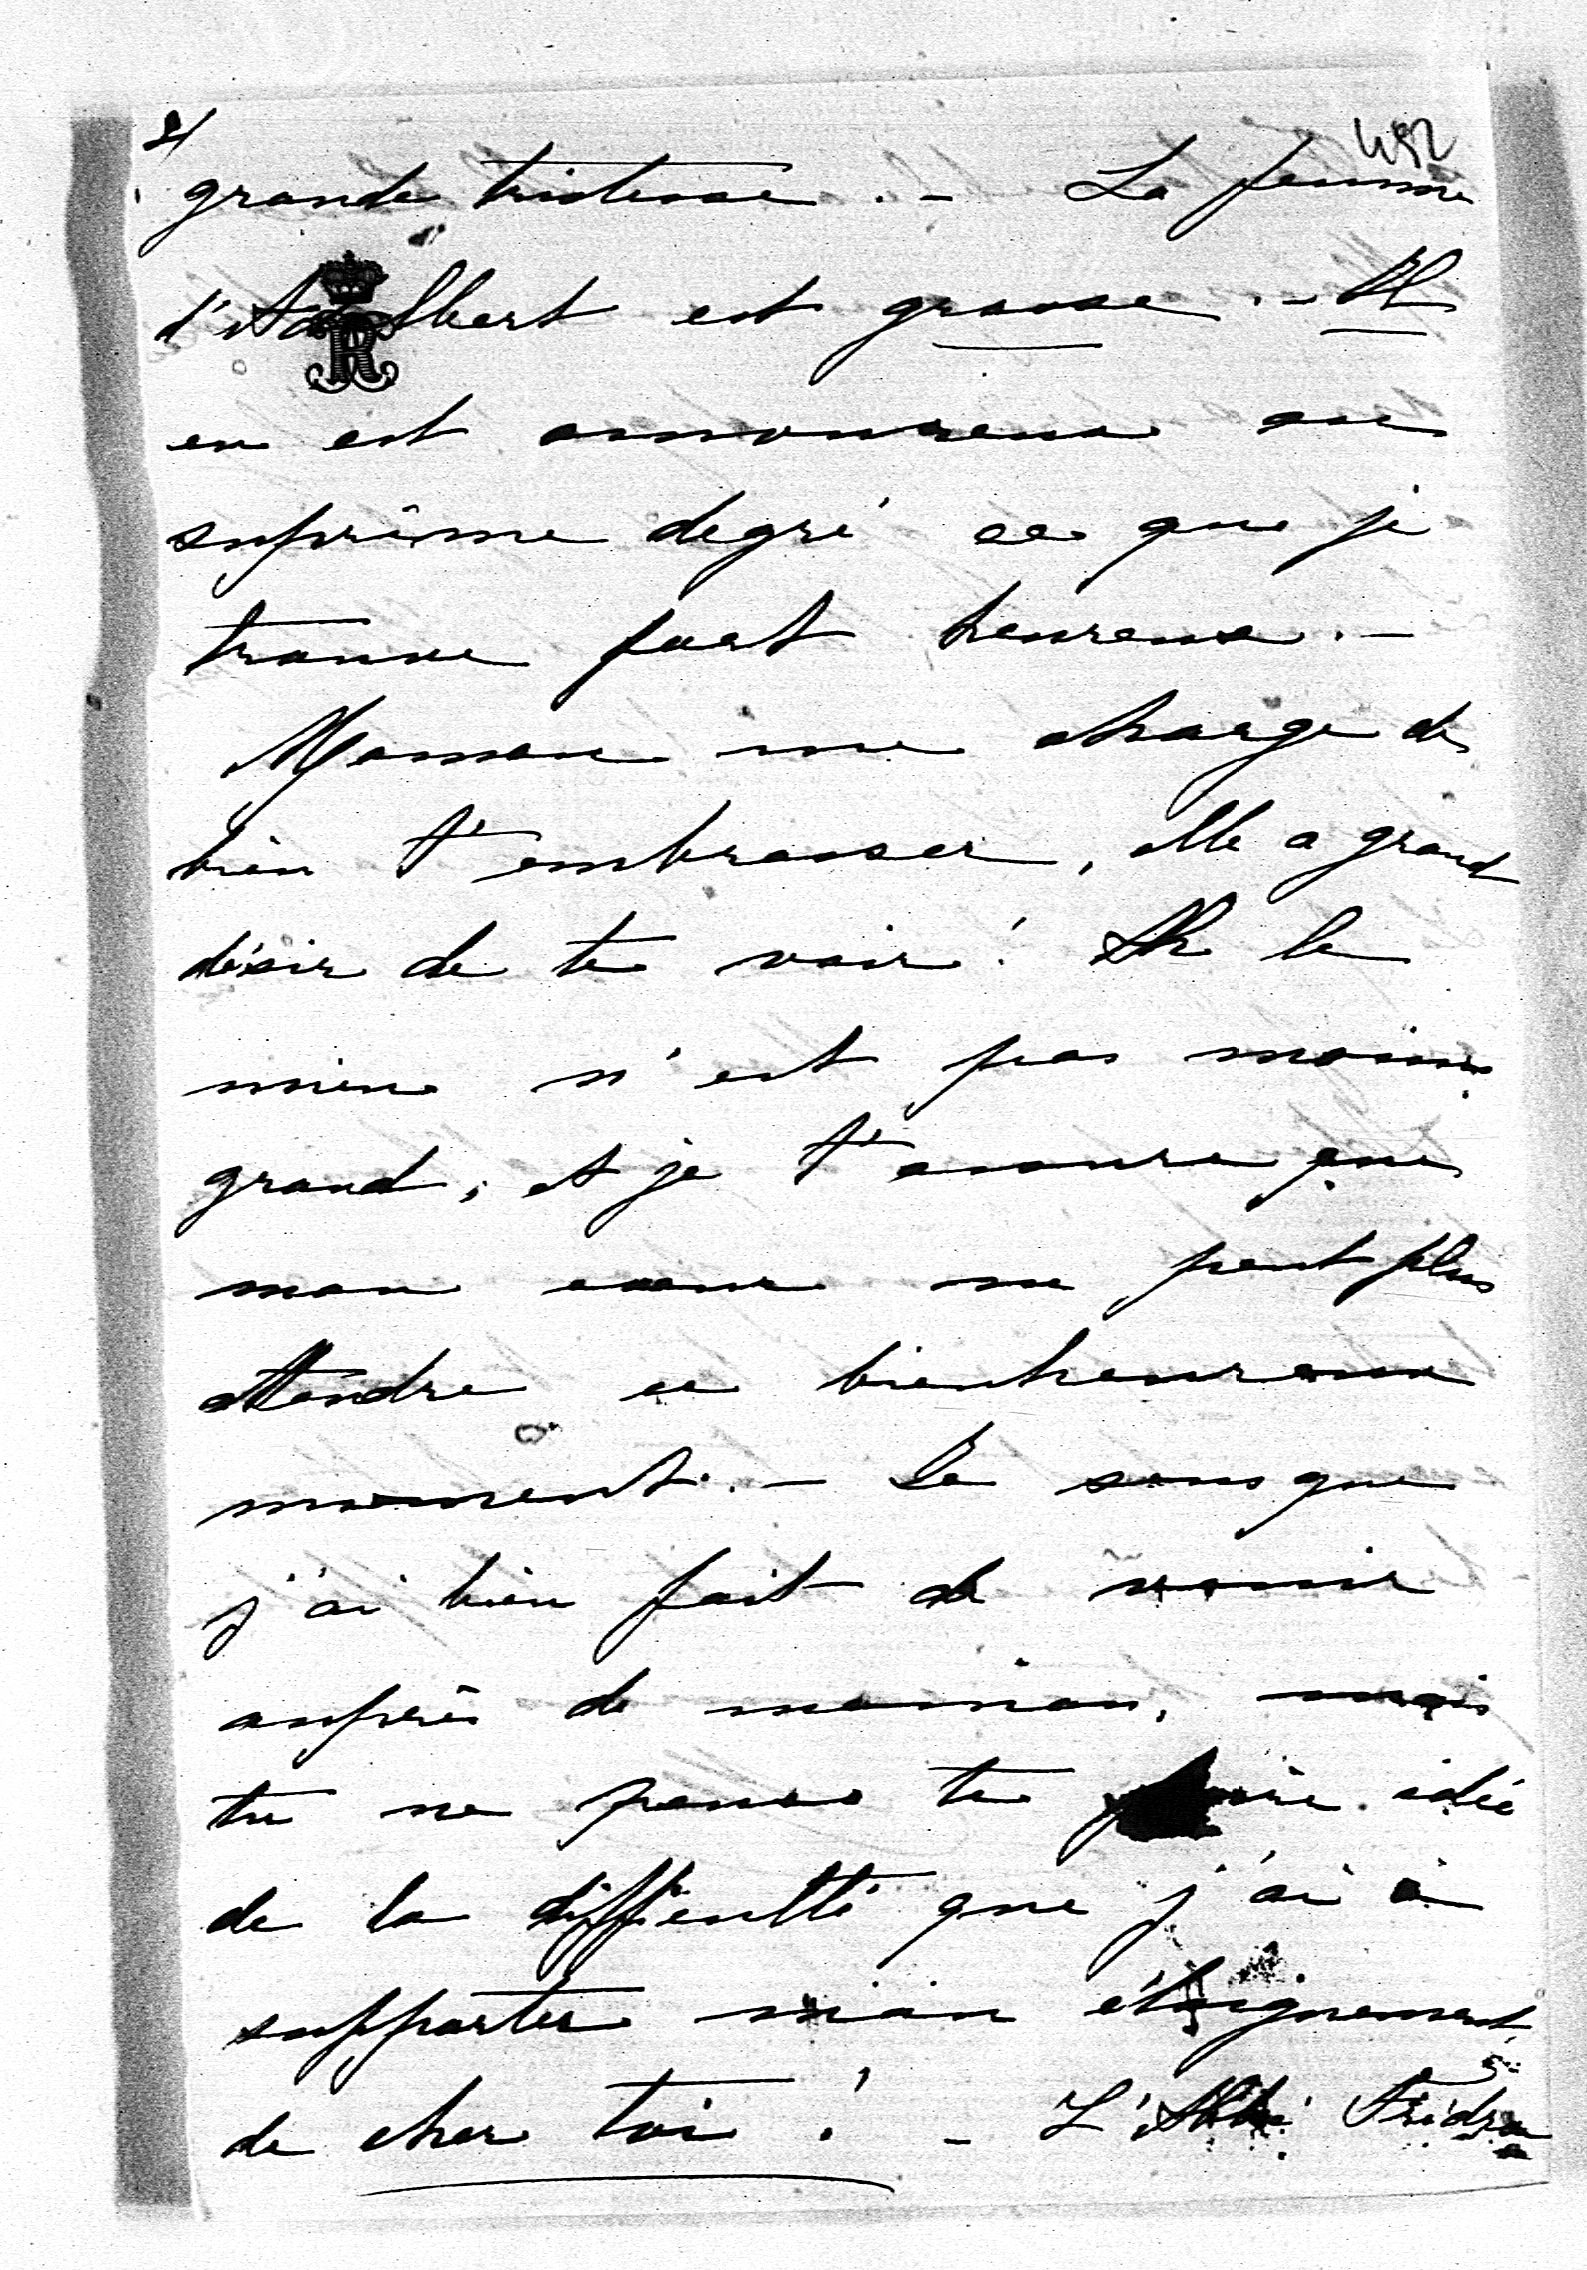 2/
452
grande tristesse. – La femme
d'Adalbert est grosse. – Il
en est amoureux au
suprême degré ce que je
trouve fort heureux. –
Maman me charge de
bien t'embrasser, elle a grand
désir de te voir! Ah le
mien n'est pas moins
grand, et je t'assure que
mon cœur ne peut plus
attendre ce bienheureux
moment. – Je sens que
j'ai bien fait de venir
auprès de maman, mais
tu ne peux te faire idée
de la difficulté que j'ai à
supporter mon éloignement
de cher toi! – L'Abbé